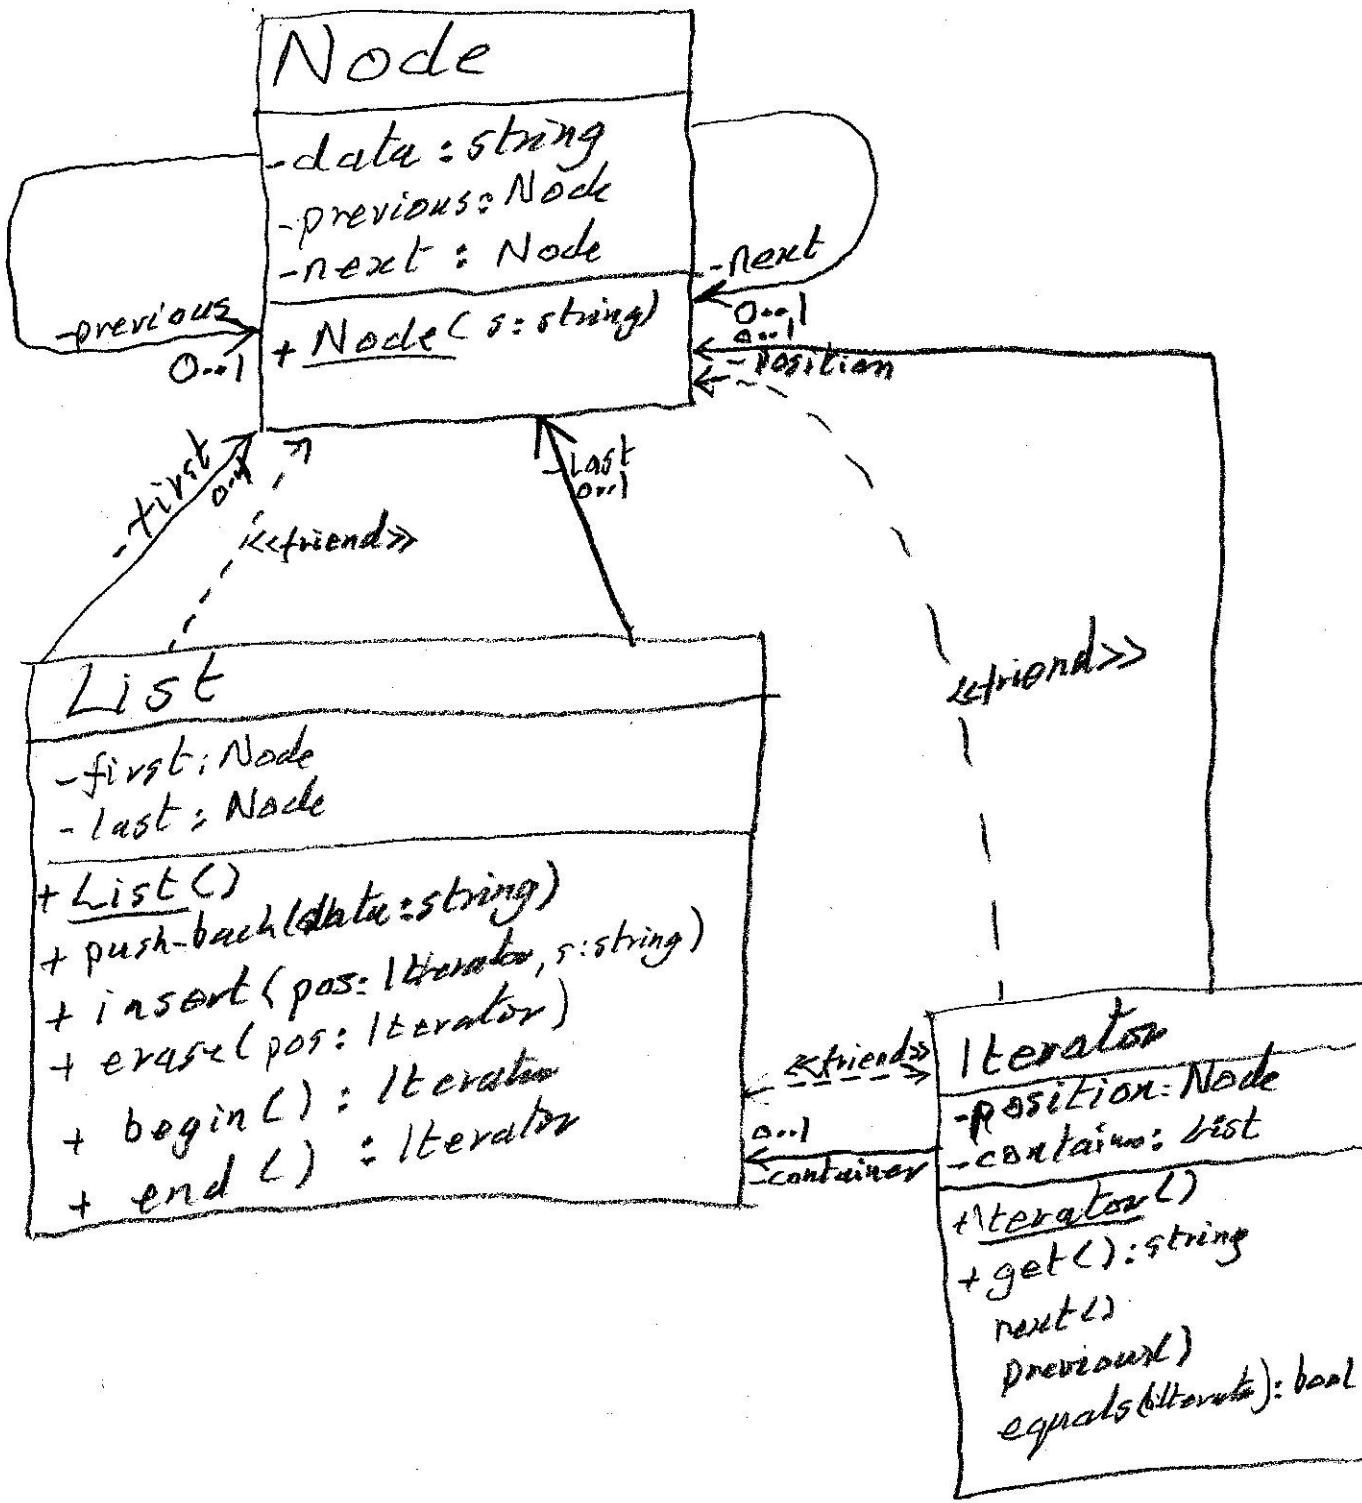 Node
-data : string
-previous: Node
-next : Node
-next
0..1
-previous
0..1
+ Node( s: string)
0..1
-Position
-first
0..1
<<friend>>
-Last
0..1
<<friend>>
List
-first: Node
-last: Node
+ List()
+ push-back(data: string)
+ insert(pos: Iterator, s: string)
+ erase(pos: Iterator)
+ begin() : Iterator
+ end() : Iterator
<<friend>>
0..1
-container
Iterator
-position: Node
: List
+Iterator()
+get(): string
next()
previous()
equals( ): bool